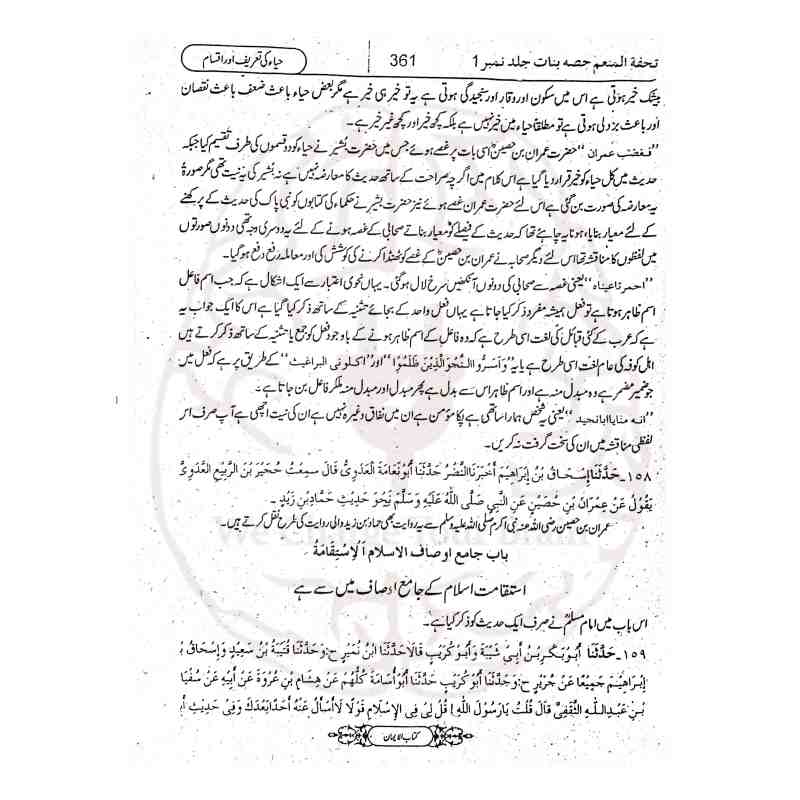 تحفة المنعم حصہ بنات جلد نمبر 1
361
حیاء کی تعریف اور اقسام
بیشک خیر ہوتی ہے اس میں سکون اور وقار اور سنجیدگی ہوتی ہے یہ تو خیر ہی خیر ہے مگر بعض حیاء باعث ضعف باعث نقصان
اور باعث بزدلی ہوتی ہے تو مطلقاً حیاء میں خیر نہیں ہے بلکہ کچھ خیر اور کچھ غیر خیر ہے۔
"فغضب عمران" حضرت عمران بن حصینؓ اسی بات پر غصے ہوئے جس میں حضرت بشیر نے حیاء کو دو قسموں کی طرف تقسیم کیا جبکہ
حدیث میں کل حیاء کو خیر قرار دیا گیا ہے اس کلام میں اگرچہ صراحت کے ساتھ حدیث کا معارضہ نہیں ہے نہ بشیر کی یہ نیت تھی مگر صورۃً
یہ معارضہ کی صورت بن گئی ہے اس لئے حضرت عمران غصے ہوئے نیز حضرت بشیر نے حکماء کی کتابوں کو نبی پاک کی حدیث کے پرکھنے
کے لئے معیار بنایا، ہونا یہ چاہئے تھا کہ حدیث کے فیصلے کو معیار بناتے صحابی کے غصہ ہونے کے لئے یہ دوسری وجہ تھی دونوں صورتوں
میں لفظوں کا مناقشہ تھا اس لئے دیگر صحابہ نے عمران بن حصینؓ کے غصے کو ٹھنڈا کرنے کی کوشش کی اور معاملہ رفع دفع ہو گیا۔
"احمرتا عیناہ" یعنی غصہ سے صحابی کی دونوں آنکھیں سرخ لال ہو گئی۔ یہاں نحوی اعتبار سے ایک اشکال ہے کہ جب اسم فاعل
اسم ظاہر ہوتا ہے تو فعل ہمیشہ مفرد ذکر کیا جاتا ہے یہاں فعل واحد کے بجائے تثنیہ کے ساتھ ذکر کیا گیا ہے اس کا ایک جواب یہ
ہے کہ عرب کے کئی قبائل کی لغت اسی طرح ہے کہ وہ فاعل کے اسم ظاہر ہونے کے باوجود فعل کو جمع یا تثنیہ کے ساتھ ذکر کرتے ہیں
اہل کوفہ کی عام لغت اسی طرح ہے یا یہ "وَاَسَرُّوا النَّجْوَ الَّذِيْنَ ظَلَمُوْا" اور "اکلونی البراغیث" کے طریق پر ہے کہ فعل میں
جو ضمیر مضمر ہے وہ مبدل منہ ہے اور اسم ظاہر اس سے بدل ہے پھر مبدل اور مبدل منہ ملکر فاعل بن جاتا ہے۔
"انه منا یا ابا نجید" یعنی یہ شخص ہمارا ساتھی ہے پکا مؤمن ہے ان میں نفاق وغیرہ نہیں ہے ان کی نیت اچھی ہے آپ صرف اس
لفظی مناقشہ میں ان کی سخت گرفت نہ کریں۔
۱۵۸۔ حَدَّثَنَا إِسْحَاقُ بْنُ إِبْرَاهِيْمَ أَخْبَرَنَا النَّضْرُ حَدَّثَنَا أَبُو نَعَامَةَ الْعَدَوِيُّ قَالَ سَمِعْتُ حُجَيْرَ بْنَ الرَّبِيْعِ الْعَدَوِيَّ
يَقُوْلُ عَنْ عِمْرَانَ بْنِ حُصَيْنٍ عَنِ النَّبِيِّ صَلَّى اللّٰهُ عَلَيْهِ وَسَلَّمَ نَحْوَ حَدِيْثِ حَمَّادِ بْنِ زَيْدٍ۔
عمران بن حصین رضی اللہ عنہ نبی اکرم صلی اللہ علیہ وسلم سے یہ روایت بھی حماد بن زید والی روایت کی طرح نقل کرتے ہیں۔
باب جامع اوصاف الاسلام اَلْاِسْتِقَامَةُ
استقامت اسلام کے جامع اوصاف میں سے ہے
اس باب میں امام مسلمؒ نے صرف ایک حدیث کو ذکر کیا ہے۔
۱۵۹۔ حَدَّثَنَا أَبُو بَكْرِ بْنُ أَبِيْ شَيْبَةَ وَأَبُو كُرَيْبٍ قَالَا حَدَّثَنَا ابْنُ نُمَيْرٍ ح: وَحَدَّثَنَا قُتَيْبَةُ بْنُ سَعِيْدٍ وَإِسْحَاقُ بْنُ
إِبْرَاهِيْمَ جَمِيْعًا عَنْ جَرِيْرٍ ح: وَحَدَّثَنَا أَبُو كُرَيْبٍ حَدَّثَنَا أَبُو أُسَامَةَ كُلُّهُمْ عَنْ هِشَامِ بْنِ عُرْوَةَ عَنْ أَبِيْهِ عَنْ سُفْيَا
بْنِ عَبْدِ اللّٰهِ الثَّقَفِيِّ قَالَ قُلْتُ يَا رَسُوْلَ اللّٰهِ! قُلْ لِيْ فِي الْإِسْلَامِ قَوْلًا لَا أَسْأَلُ عَنْهُ أَحَدًا بَعْدَكَ وَفِيْ حَدِيْثِ أَبِ
کتاب الایمان